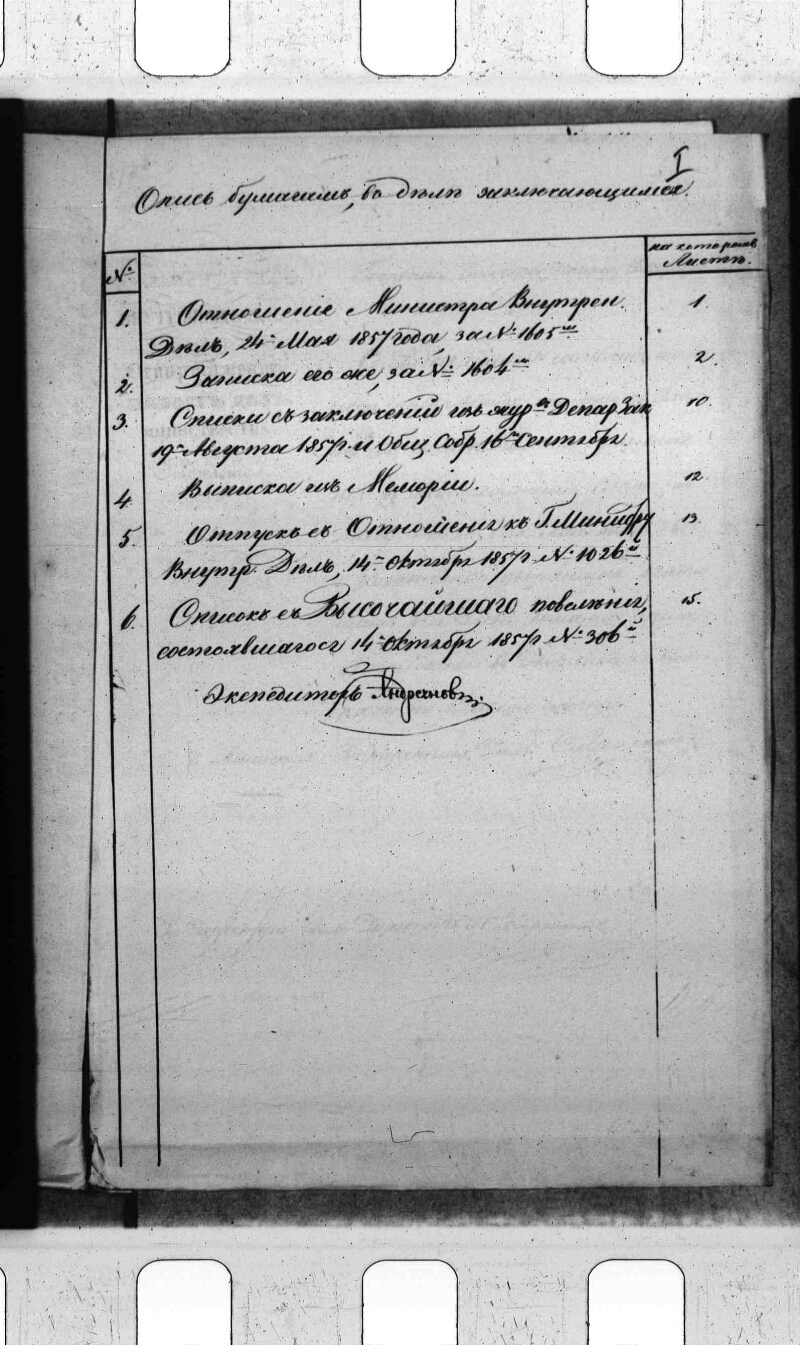 I
Опись бумагамъ, въ дѣлѣ заключающимся.
№
на которомъ
Листѣ.
1. Отношеніе Министра Внутрен. 1.
Дѣлъ, 24го Мая 1857 года, за № 1605мъ
2. Записка его же, за № 1604мъ 2.
3. Списки съ заключеній изъ жур. Депар. Зак. 10.
19го Августа 1857 г. и Общ. Собр. 16го Сентября.
4. Выписка изъ Меморіи. 12.
5. Отпускъ съ Отношенія къ Г. Министру 13.
Внутр. Дѣлъ, 14го Октября 1857 г. № 1026й
6. Списокъ съ Высочайшаго повелѣнія, 15.
состоявшагося 14го Октября 1857 г. № 306й
Экспедиторъ